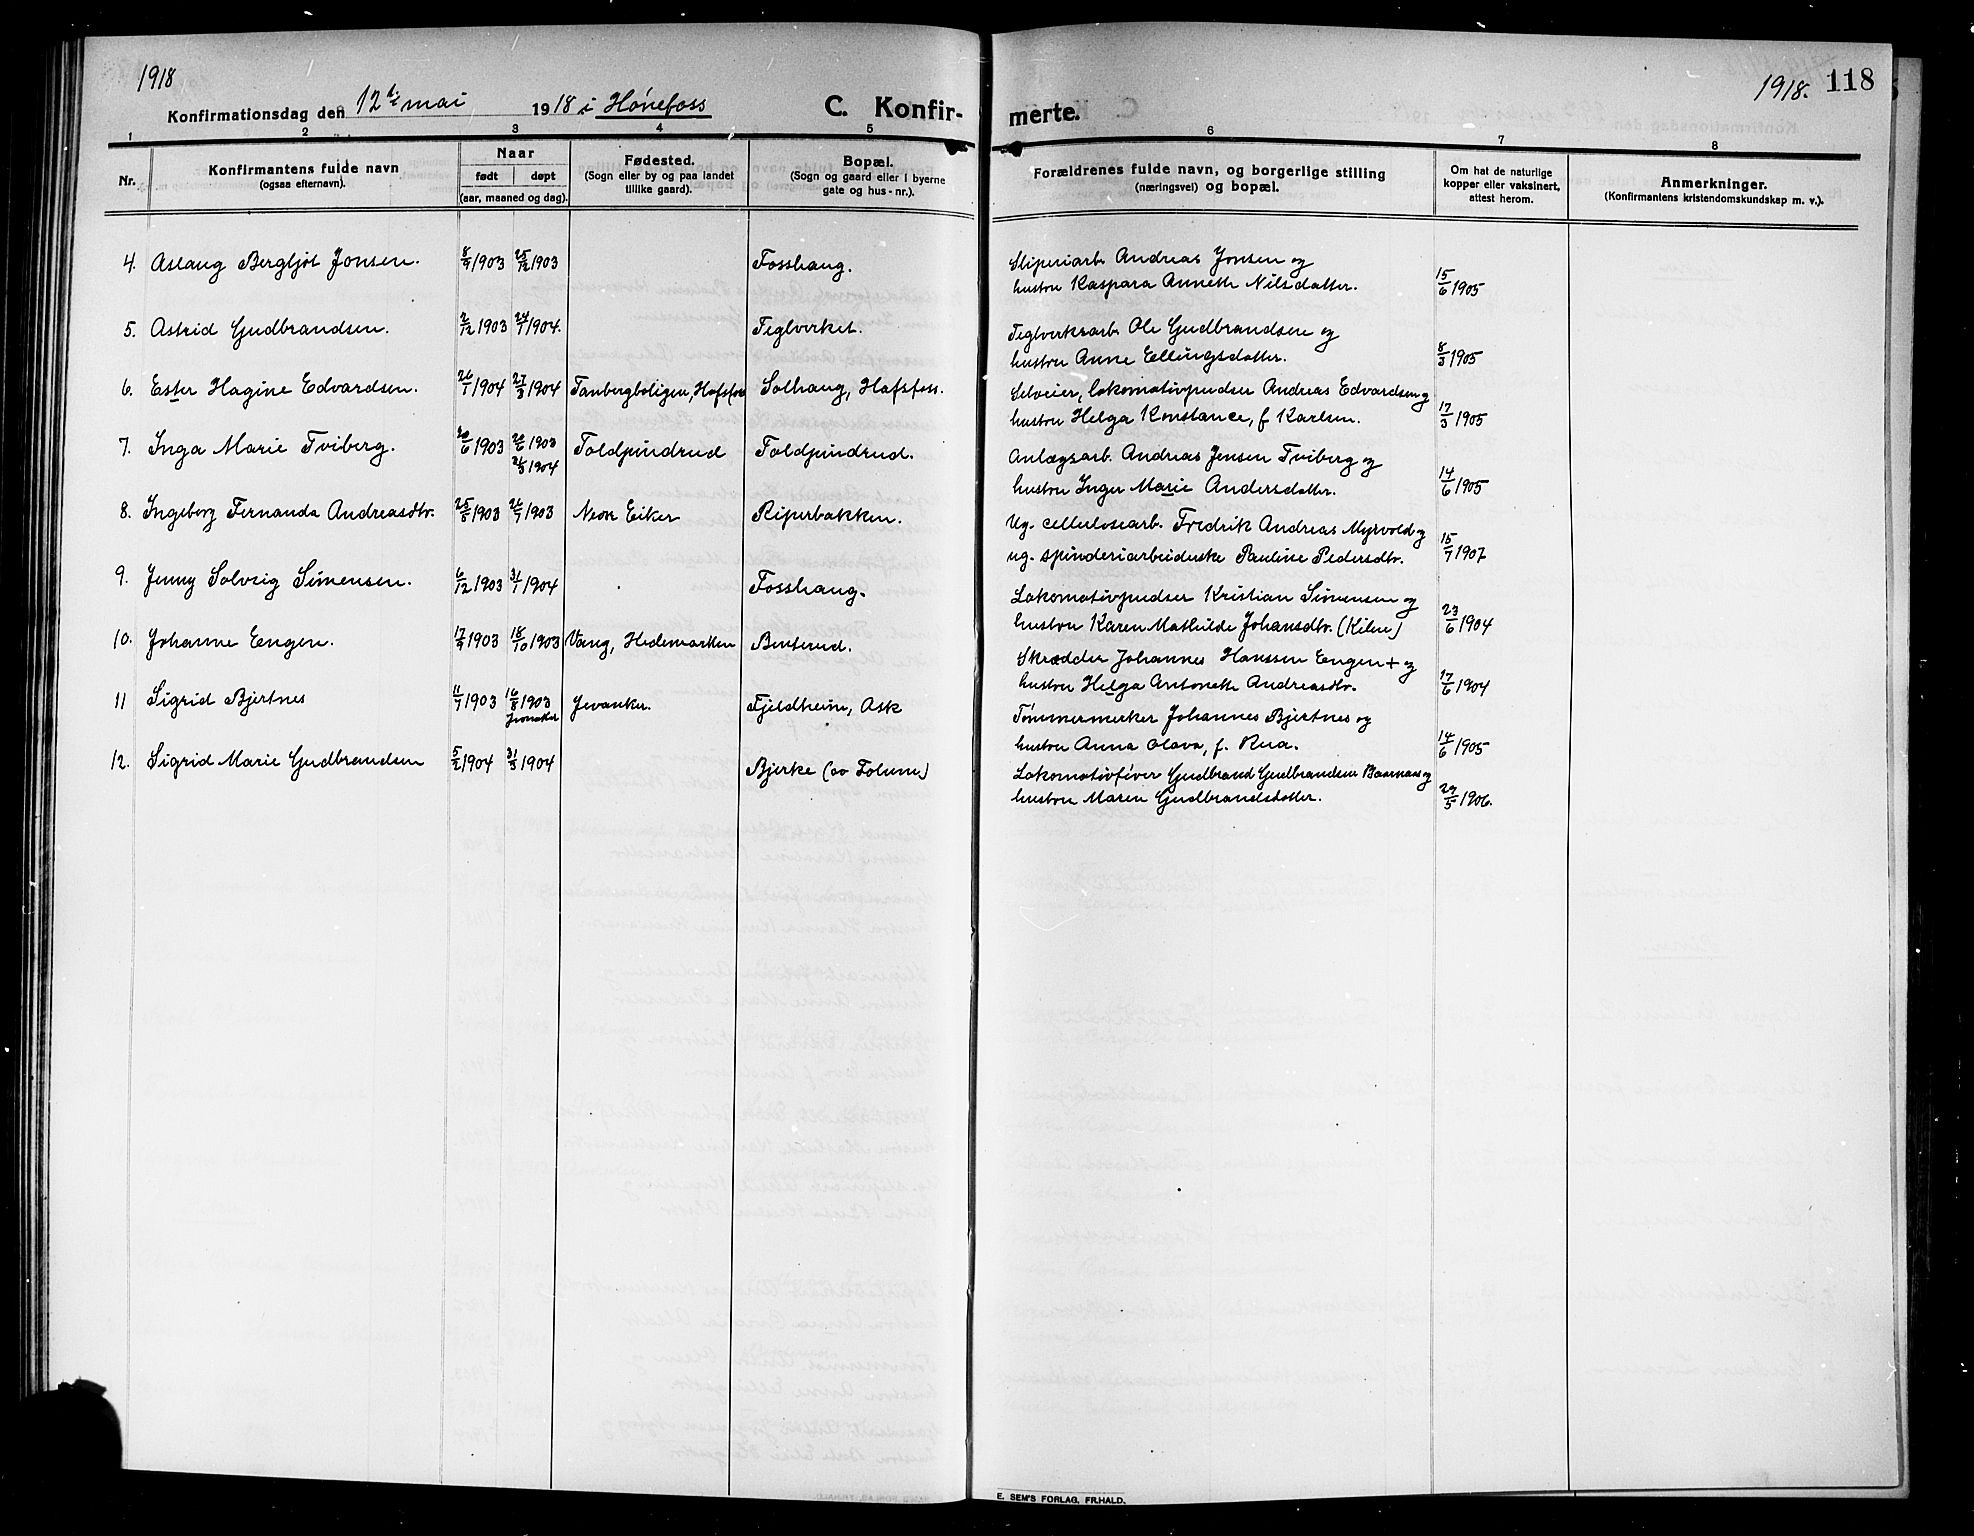 1918
Konfirmationsdag den 12te mai 1918 i Hønefoss
C. Konfir-
1 2 3 4 5
Nr.
Konfirmantens fulde navn
(ogsaa efternavn).
Naar
født døpt
(aar, maaned og dag).
Fødested.
(Sogn eller by og paa landet
tillike gaard).
Bopæl.
(Sogn og gaard eller i byerne
gate og hus-nr.).
4. Aslaug Bergljot Jonsen. 8/9 1903 25/12 1903 Fosshaug.
5. Astrid Gudbrandsen. 2/12 1903 24/1 1904. Teglverket.
6. Ester Hagine Edvardsen. 26/1 1904 27/3 1904 Tanbergboligen, Hofsfos Solhaug, Hofsfoss.
7. Inga Marie Tviberg. 20/6 1903 20/6 1903 Foldpindrud Foldpindrud.
2/5 1904
8. Ingeborg Fernanda Andreasdtr. 25/8 1903 1903 Nedre Eiker Riperbakken.
9. Jenny Solveig Simensen. 6/12 1903 31/1 1904 Fosshaug.
10. Johanne Engen. 17/9 1903 18/10 1903 Vang, Hedemarken Benterud.
11 Sigrid Bjertnes 11/7 1903 16/8 1903 Jevnaker. Fjeldheim, Ask
Jevnaker
12. Sigrid Marie Gudbrandsen 5/2 1904 31/3 1904 Bjerke (av Folum)
1918. 118
merte.
6 7 8
Forældrenes fulde navn, og borgerlige stilling
(næringsvei) og bopæl.
Om hat de naturlige
kopper eller vaksinert,
attest herom.
Anmerkninger.
(Konfirmantens kristendomskundskap m. v.).
Sliperiarb. Andreas Jonsen og
hustru Kaspara Annette Nilsdatter. 15/6 1905
Teglverksarb. Ole Gudbrandsen og
hustru Anne Ellingsdatter. 8/3 1905
Selveier, lokomotivpudser Andreas Edvardsen og
hustru Helga Konstance, f. Karlsen. 17/3 1905
Anlægsarb. Andreas Jensen Tviberg og
hustru Inger Marie Andersdatter. 14/6 1905
Ug. cellulosearb. Fredrik Andreas Myrvold og
ug. spinderiarbeiderske Pauline Pedersdtr. 15/7 1907
Lokomotivpudser Kristian Simensen og
hustru Karen Mathilde Johansdtr. (Kilen) 23/6 1904
Skrædder Johannes Hanssen Engen + og
hustru Helga Antonette Andreasdtr. 17/6 1904
Tømmermerker Johannes Bjertnes og
hustru Anna Olava, f. Rua. 14/6 1905
Lokomotivfører Gudbrand Gudbrandsen og
hustru Maren Gudbrandsdatter. 29/5 1906.
E. SEM'S FORLAG, FR.HALD.